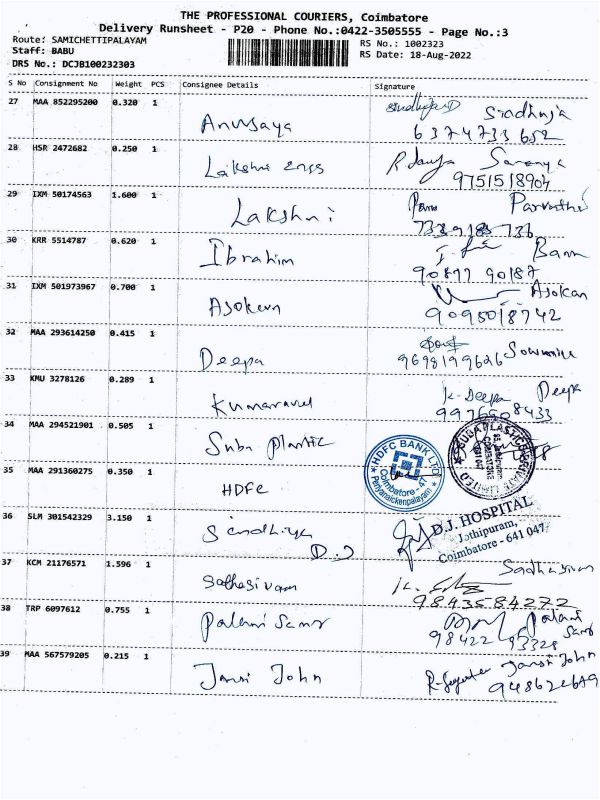 THE PROFESSIONAL COURIERS, Coimbatore
Delivery Runsheet - P20 - Phone No.:0422-3505555 - Page No.:3
Route: SAMICHETTIPALAYAM
Staff: BABU
DRS No.: DCJB100232303
RS No.: 1002323
RS Date: 18-Aug-2022
S No Consignment No Weight PCS Consignee Details Signature
27 MAA 852295200 0.320 1 Anusaya
28 HSR 2472682 0.250 1 Lakshmi Saranya
9751518904
29 IXM 50174563 1.600 1 Lakshmi
30 KRR 5514787 0.620 1 Ibrahim Banu
90877 90187
31 IXM 501973967 0.700 1 Asokan Asokan
9095018742
32 MAA 293614250 0.415 1 Deepa
9698199626
33 KMU 3278126 0.289 1 Kumaravel K. Deepa Deepa
34 MAA 294521901 0.505 1 Suba Plastic
HDFC BANK LTD
Coimbatore-47
Periyanaickenpalayam
35 MAA 291360275 0.350 1 HDFC
36 SLM 301542329 3.150 1 D.J
D.J. HOSPITAL
Jothipuram,
Coimbatore - 641 047
37 KCM 21176571 1.596 1 Sathasivam Sadhasivam
9843584272
38 TRP 6097612 0.755 1 Palani Samy Palani Samy
98422 93328
39 MAA 567579205 0.215 1 Jansi John Jansi John